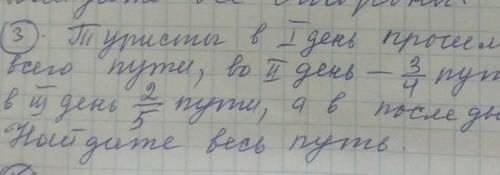 3. Туристы в I день прошли
всего пути, во II день — 3/4 пут
в III день 2/5 пути, а в последн
Найдите весь путь.